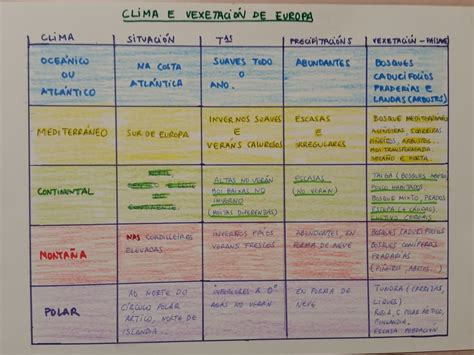 CLIMA E VEXETACIÓN DE EUROPA
CLIMA
SITUACIÓN
TªS
PRECIPITACIÓNS
VEXETACIÓN - PAISAXE
OCEÁNICO
OU
ATLÁNTICO
NA COSTA
ATLÁNTICA
SUAVES TODO
O
ANO.
ABUNDANTES
BOSQUES
CADUCIFOLIOS
PRADERÍAS E
LANDAS (ARBUSTOS)
MEDITERRÁNEO
SUR DE EUROPA
INVERNOS SUAVES
E
VERÁNS CALUROSOS
ESCASAS
E
IRREGULARES
BOSQUE MEDITERRÁNEO
ACIÑEIRAS, SOBREIRAS
PIÑEIROS, ARBUSTOS...
MOI TRANSFORMADA
SECAÑO E HORTA.
CONTINENTAL
ALTAS NO VERÁN
MOI BAIXAS NO
INVERNO
(MOITAS DIFERENZAS)
ESCASAS
(NO VERÁN)
TAIGA (BOSQUES ABETOS)
POUCO HABITADOS
BOSQUE MIXTO, PRADOS
CEREAIS
MONTAÑA
NAS CORDILLEIRAS
ELEVADAS
INVERNOS FRÍOS
VERÁNS FRESCOS
ABUNDANTES, EN
FORMA DE NEVE
BOSQUES CADUCIFOLIOS
BOSQUES CONÍFERAS
PRADARÍAS
(PIÑEIROS, ABETOS...)
POLAR
AO NORTE DO
CÍRCULO POLAR
ÁRTICO, NORTE DE
ISLANDIA...
INFERIORES A 0º
AGÁS NO VERÁN
EN FORMA DE
NEVE
TUNDRA
LIQUES)
C. POLAR ÁRTICO,
FINLANDIA.
ESCASA POBOACIÓN